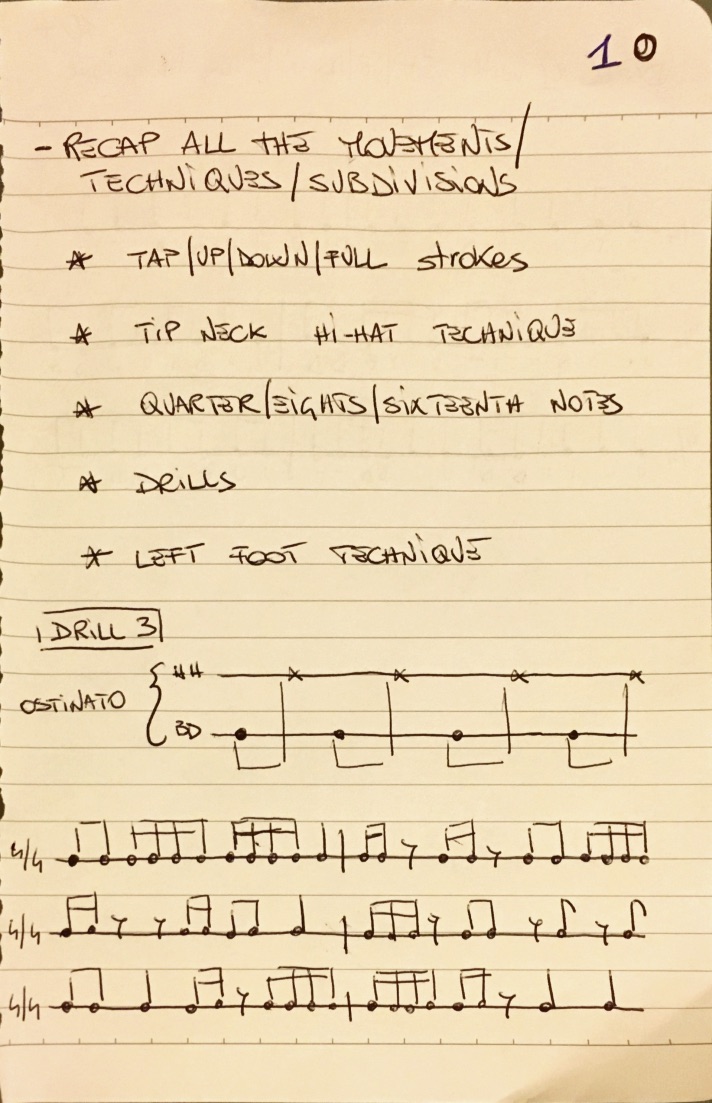 10
- RECAP ALL THE MOVEMENTS/
TECHNIQUES/SUBDIVISIONS
* TAP/UP/DOWN/FULL strokes
* TIP NECK HI-HAT TECHNIQUE
* QUARTER/EIGHTS/SIXTEENTH NOTES
* DRILLS
* LEFT FOOT TECHNIQUE
DRILL 3
HH
OSTINATO
BD
4/4
4/4
4/4